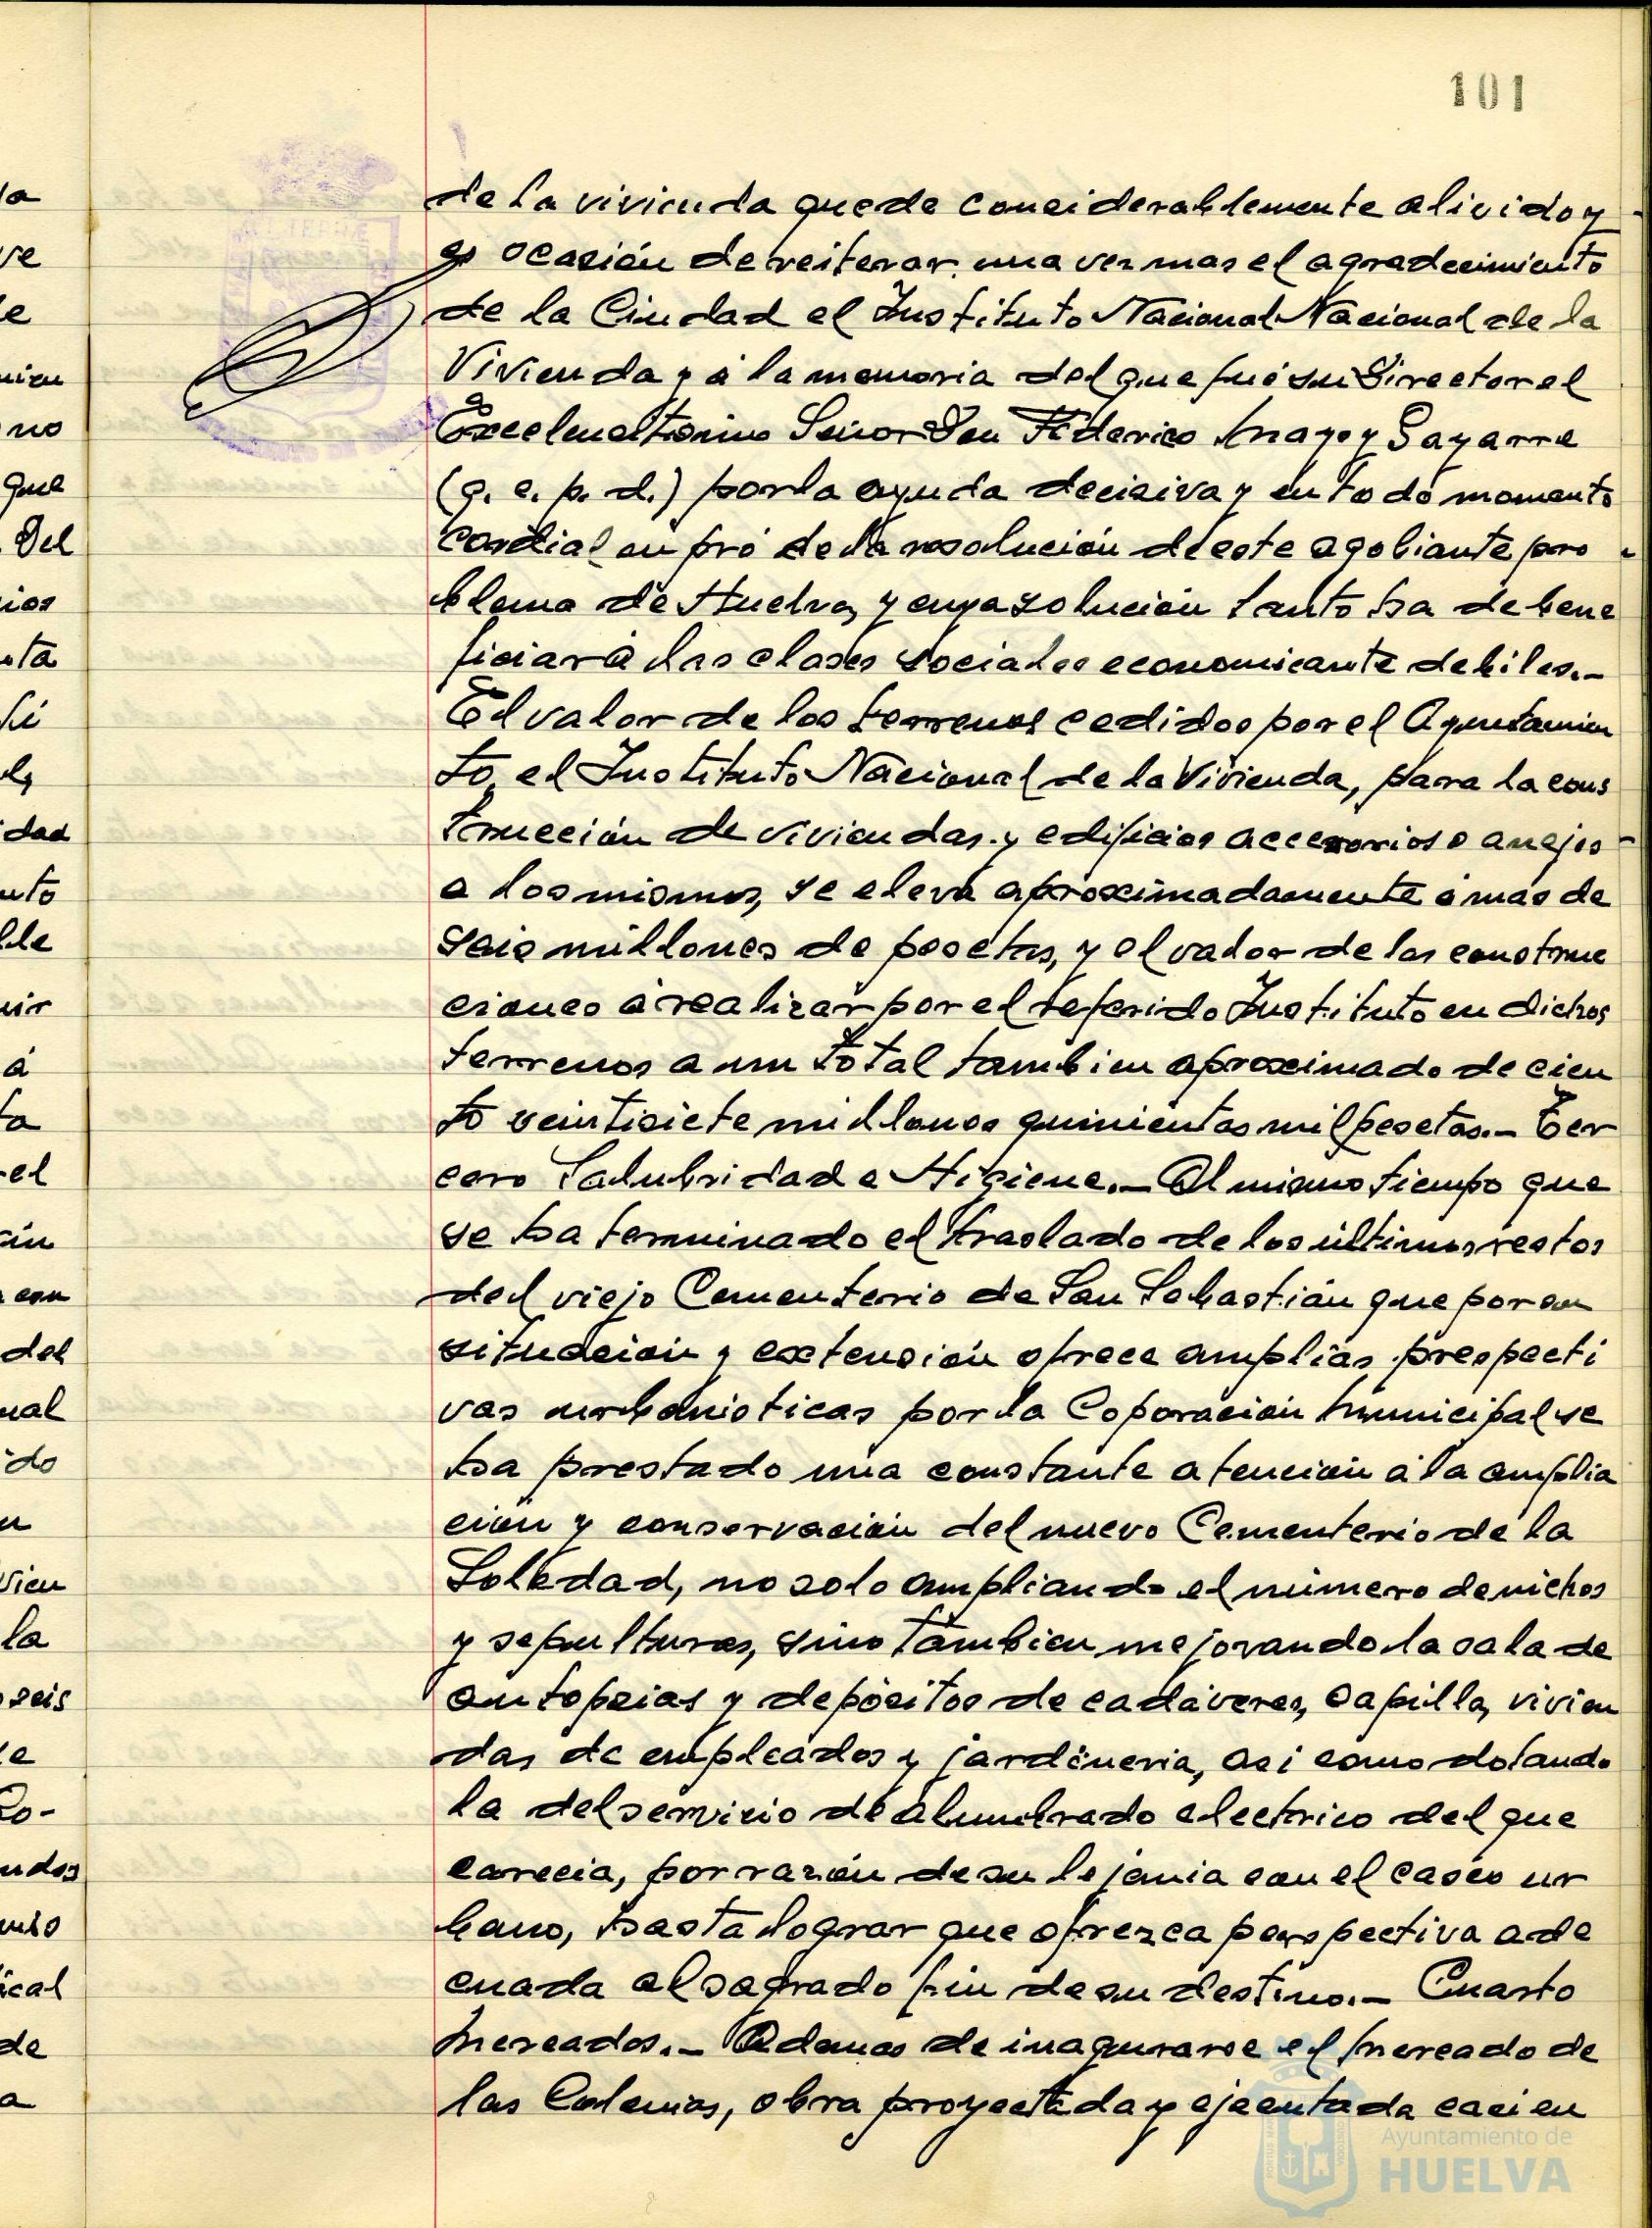 101
de la vivienda quede considerablemente alivido y
es ocasión de reiterar una vez mas el agradecimiento
de la Ciudad el Instituto Nacional Nacional de la
Vivienda y á la memoria del que fué su Director el
Excelentísimo Señor Don Federico Mayo y Gayarre
(q. e. p. d.) por la ayuda decisiva y en todo momento
cordial en pró de la resolución de este agobiante pro
blema de Huelva, y cuya solución tanto ha de bene
ficiar á las clases sociales economicante debiles.-
El valor de los terrenos cedidos por el Ayuntamien
to el Instituto Nacional de la Vivienda, para la cons
trucción de viviendas y edificios accesorios o anejos
a los mismos, se eleva aproximadamente á mas de
seis millones de pesetas, y el valor de las construc
ciones á realizar por el referido Instituto en dichos
terrenos a un total tambien aproximado de cien
to veintisiete millones quinientas mil pesetas.- Ter
cero Salubridad e Higiene.- Al mismo tiempo que
se ha terminado el traslado de los últimos restos
del viejo Cementerio de San Sebastián que por su
situación y extensión ofrece amplias prespecti
vas urbanisticas por la Coporación Municipal se
ha prestado una constante atención á la amplia
ción y conservación del nuevo Cementerio de la
Soledad, no solo ampliando el número de nichos
y sepulturas, sino tambien mejorando la sala de
autopsias y depósitos de cadáveres, Capilla, vivien
das de empleados y jardineria, asi como dotando
la del servicio de alumbrado electrico del que
carecia, por razón de su lejania con el casco ur
bano, hasta lograr que ofrezca perspectiva ade
cuada al sagrado fin de su destino.- Cuarto
Mercados.- Ademas de inagurarse el Mercado de
las Colonias, obra proyectada y ejecutada casi en
Ayuntamiento de
HUELVA